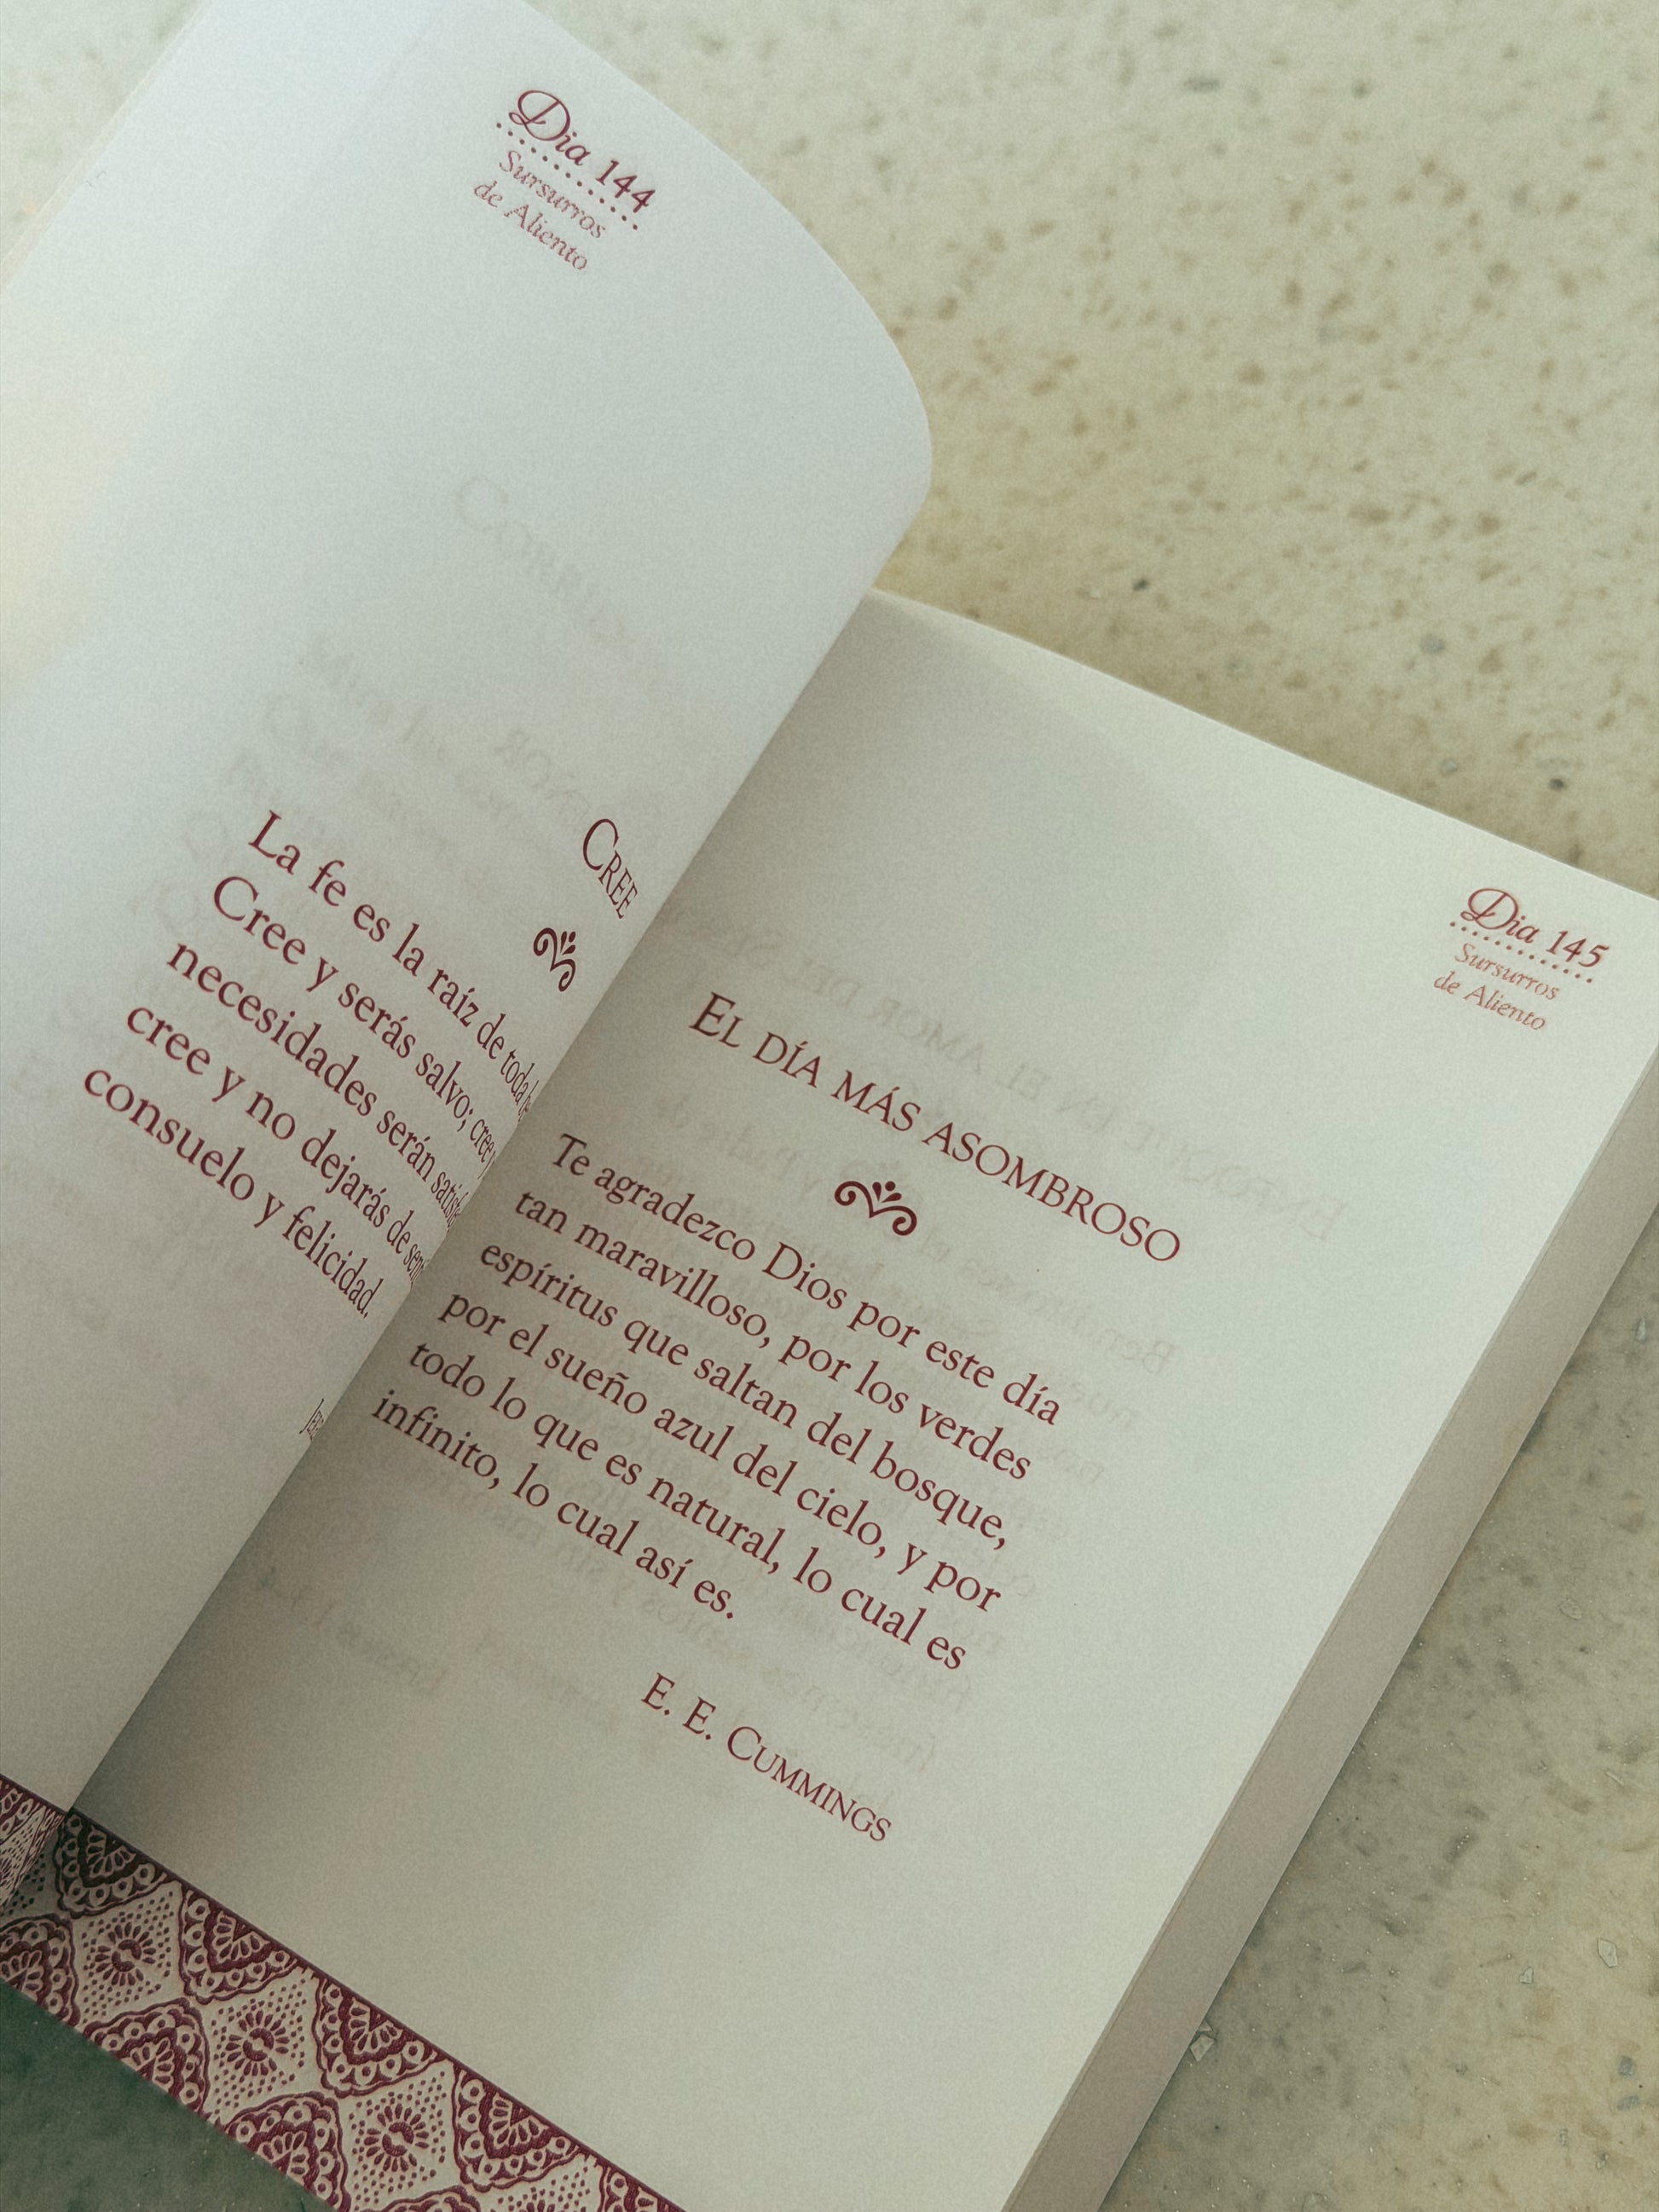 Dia 144
Sursurros
de Aliento
CREE
La fe es la raíz de toda
Cree y serás salvo; cree y
necesidades serán
cree y no dejarás de
consuelo y felicidad.
Dia 145
Sursurros
de Aliento
EL DÍA MÁS ASOMBROSO
Te agradezco Dios por este día
tan maravilloso, por los verdes
espíritus que saltan del bosque,
por el sueño azul del cielo, y por
todo lo que es natural, lo cual es
infinito, lo cual así es.
E. E. CUMMINGS